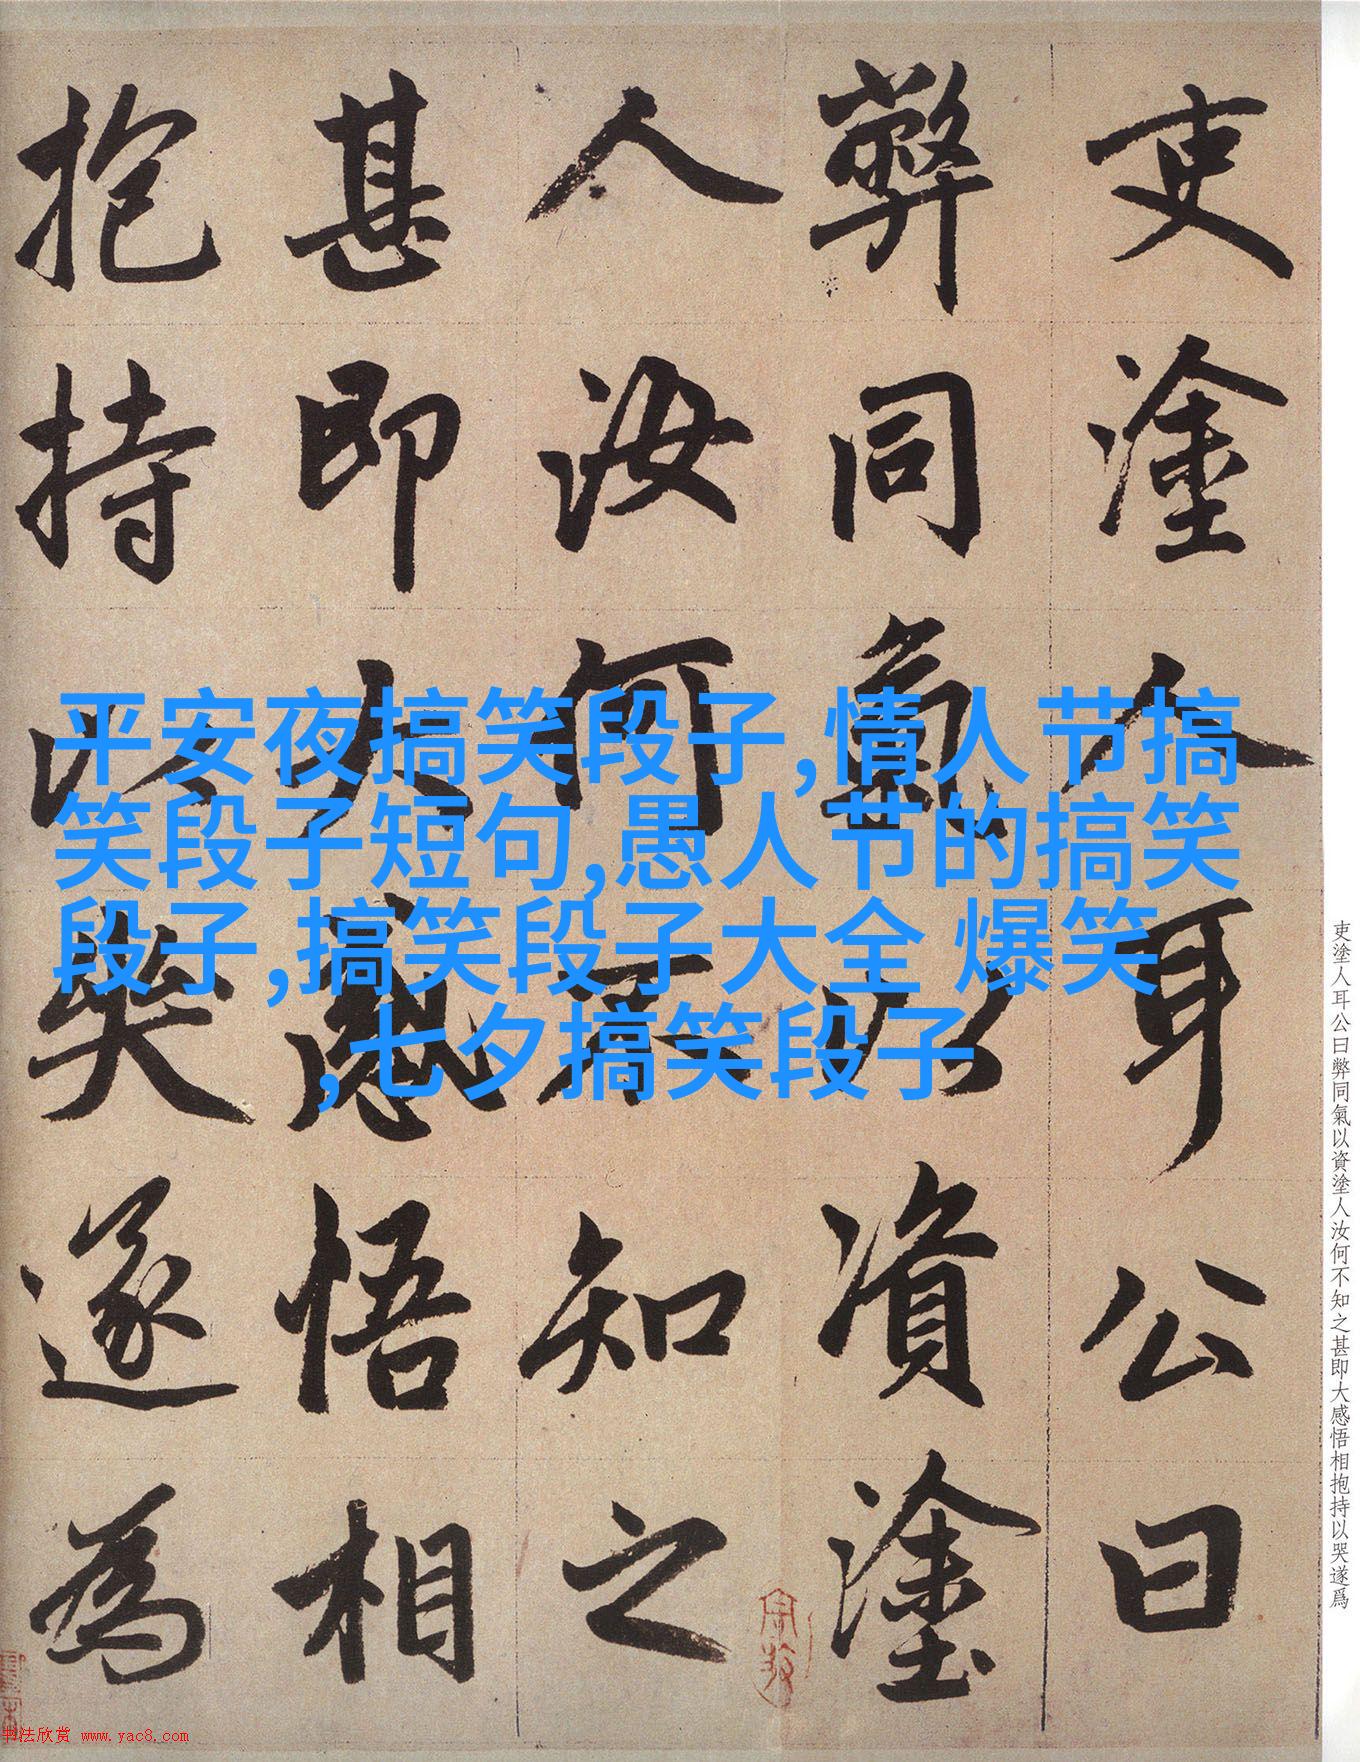 吏塗人耳公曰
弊同氣以資塗
人汝何不知之
甚即大感悟相
抱持以哭遂為
平安夜搞笑段子,情人节搞
笑段子短句,愚人节的搞笑
段子,搞笑段子大全 爆笑
,七夕搞笑段子
吏塗人耳公曰弊同氣以資塗人汝何不知之甚即大感悟相抱持以哭遂爲
书法欣赏 www.yac8.com